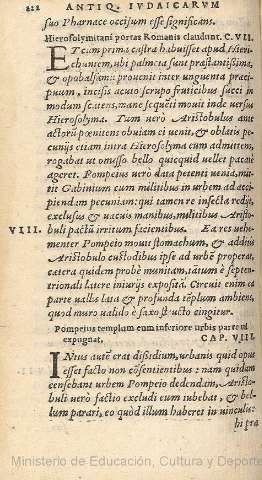 222 ANTIQ. IVDAICARVM
suo Pharnace occisum esse significans.
Hierosolymitani portas Romanis claudunt. C. VII.
ET cum prima castra habuisset apud Hieri
chuntem, ubi palmeta sunt præstantissima,
& opobalsamū prouenit inter unguenta præci
puum, incisis acuto scrupo fruticibus succi in
modum scatens, mane sequēti mouit inde uersus
Hierosolyma. Tum uerò Aristobulus ante
actorū pœnitens obuiam ei uenit, & oblatis pe
cunijs citam intra Hierosolyma eum admittem,
rogabat ut omisso bello quicquid uellet pacatè
ageret. Pompeius uerò data petenti uenia, mi
sit Gabinium cum militibus in urbem ad acci
piendam pecuniam: qui tamen re infecta redijt,
exclusus & uacuis manibus, militibus Aristo
buli pactū irritum facientibus. Ea res uehe
VIII. menter Pompeio mouit stomachum, & addito
Aristobulo custodibus ipse ad urbē properat,
cætera quidem probè munitam, tātum è septen-
trionali latere iniurijs exposita. Circuit enim ea
parte uallis lata & profunda tēplum ambiens,
quod muro ualido è saxo structo cingitur.
Pompeius templum cum inferiore urbis parte
expugnat, CAP. VIII.
INtus autē erat dissidium, urbanis quid opus
esset facto non cōsentientibus: nam quidam
censebant urbem Pompeio dedendam, Aristo-
buli uerò factio excludi eum iubebat, & bel-
lum parari, eo quòd illum haberet in uinculis:
hi præ
Ministerio de Educación, Cultura y Deporte